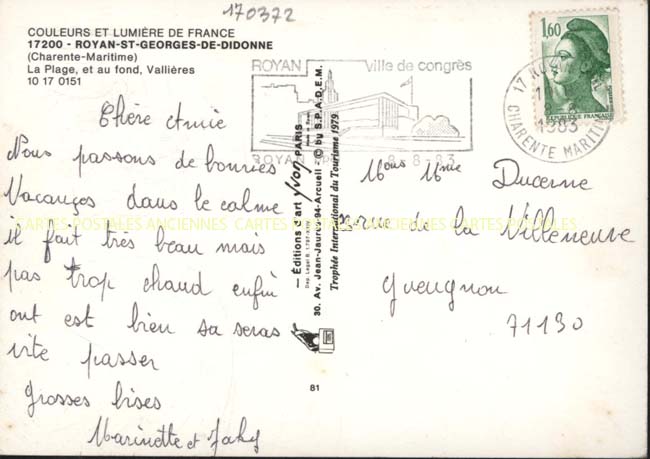 170372
COULEURS ET LUMIÈRE DE FRANCE
17200 - ROYAN-ST-GEORGES-DE-DIDONNE
(Charente-Maritime)
La Plage, et au fond, Vallières
10 17 0151
ROYAN ville de congrès
ROYAN 8-8-83
17 ROYAN
1983
CHARENTE MARITIME
1,60
REPUBLIQUE FRANÇAISE
Chère Amie
Nous passons de bonnes
Vacances dans le calme
il fait très beau mais
pas trop chaud enfin
ont est bien sa seras
vite passer
Grosses bises
Marinette et Jaky
— Éditions d'art Yvon PARIS
30. Av. Jean-Jaurès-94-Arcueil - © by S.P.A.D.E.M.
Trophée International du Tourisme 1979.
81
Mme
Ducerne
rue de la Villeneuve
Gueugnon
71130
CARTES POSTALES ANCIENNES CARTES POSTALES ANCIENNES CARTES POSTALES ANCIENNES